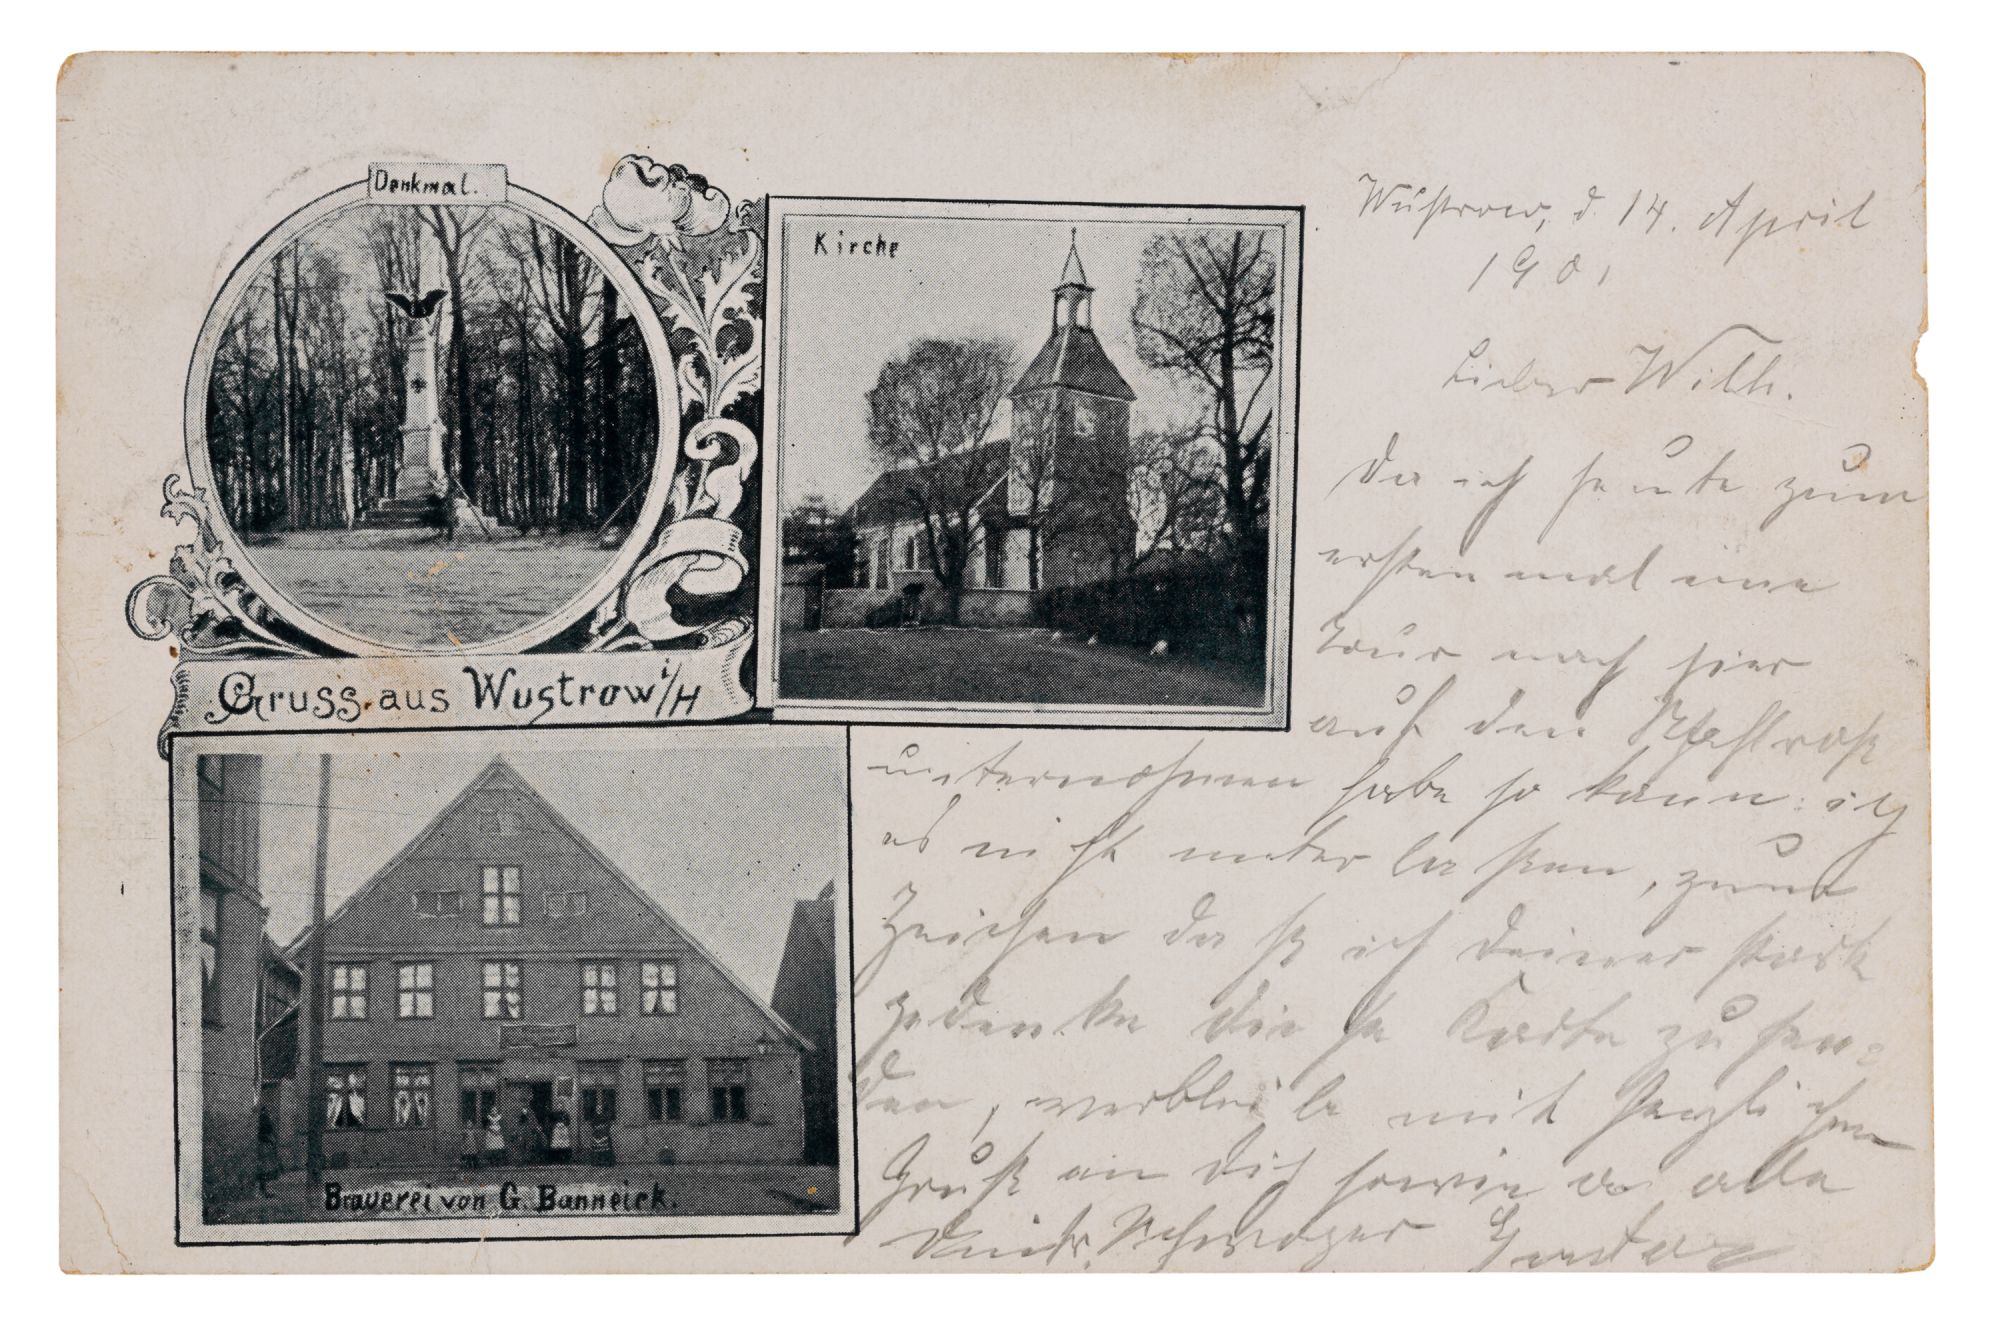 Denkmal.
Kirche
Gruss aus Wustrow i/H
Brauerei von G. Banneick.
Wustrow, d. 14. April
1901
Lieber Wilh.
Da ich heute zum
ersten mal eine
Tour nach hier
auf den Stahlroß
unternohmen habe so kann ich
es nicht unter laßen, zum
Zeichen da ß ich deiner stark
gedenke die se Karte zu sen=
den, verblei be mit herzlichen
Gruß an dich sowie a alle
Schwager Gustav